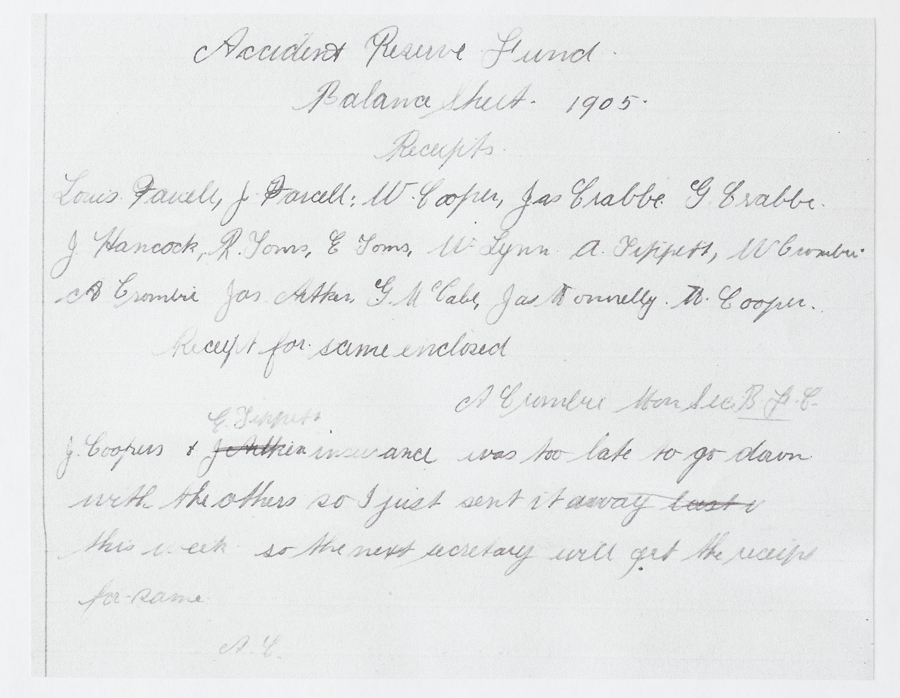 Accident Reserve Fund.
Balance Sheet. 1905.
Receipts.
Louis Farcell, J. Farcell, W. Cooper, Jas Crabbe G. Crabbe.
J Hancock, R. Toms, E Toms, W Lynn A. Tippett, W Crombie
A Crombie Jas Aitken G. McCabe, Jas Donnelly. Cooper.
Receipt for same enclosed
A Crombie Hon Sec. B. F. C.
E. Tippett
J. Coopers & J Aitken insurance was too late to go down
with the others so I just sent it away last
this week so the next secretary will get the receipt
for same
A. C.